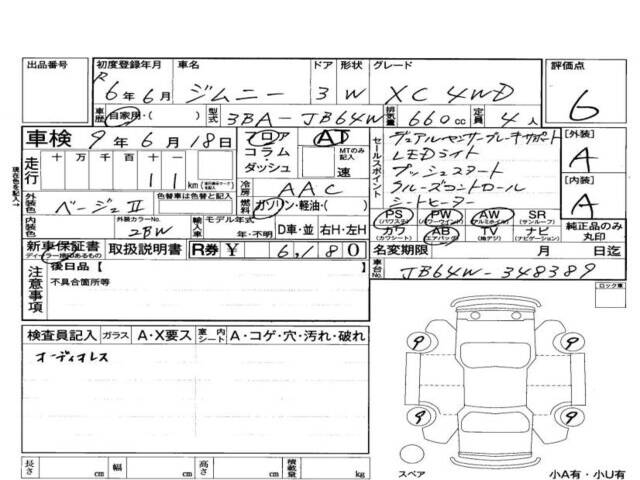 出品番号 初度登録年月 車名 ドア 形状 グレード 評価点
R 6年6月 ジムニー 3 W XC 4WD 6
車歴 自家用・( ) 型式 3BA-JB64W 排気量 660cc 定員 4人
車検 9年6月18日 フロア コラム・ダッシュ AT MTのみ記入 速
走行 十万 万 千 百 十 一
11 km
現車色を記入→
外装色 ベージュⅡ 色替車は替色名
冷房 AAC
燃料 ガソリン・軽油・( )
内装色 外装カラーNo. 2BW 輸入車 モデル年式 年・不明 D車・並 右H・左H
セールスポイント
デュアルセンサーブレーキサポート
LEDライト
プッシュスタート
クルーズコントロール
シートヒーター
[外装] A
[内装] A
PS (パワステ) PW (パワーウインド) AW (アルミホイル) SR (サンルーフ)
カワ (カワシート) AB (エアバッグ) TV (地デジ) ナビ (ナビゲーション)
純正品のみ丸印
新車保証書 ディーラー捺印のあるもの 取扱説明書 R券 ¥ 6,180
名変期限 月 日迄
車台No. JB64W-348389
注意事項 後日品【
不具合箇所等
ロック車
検査員記入 ガラス A・X要ス 室内シート A・コゲ・穴・汚れ・破れ
オーディオレス
9 9
9 9
スペア
小A有・小U有
長さ cm 幅 cm 高さ cm 積載量 kg